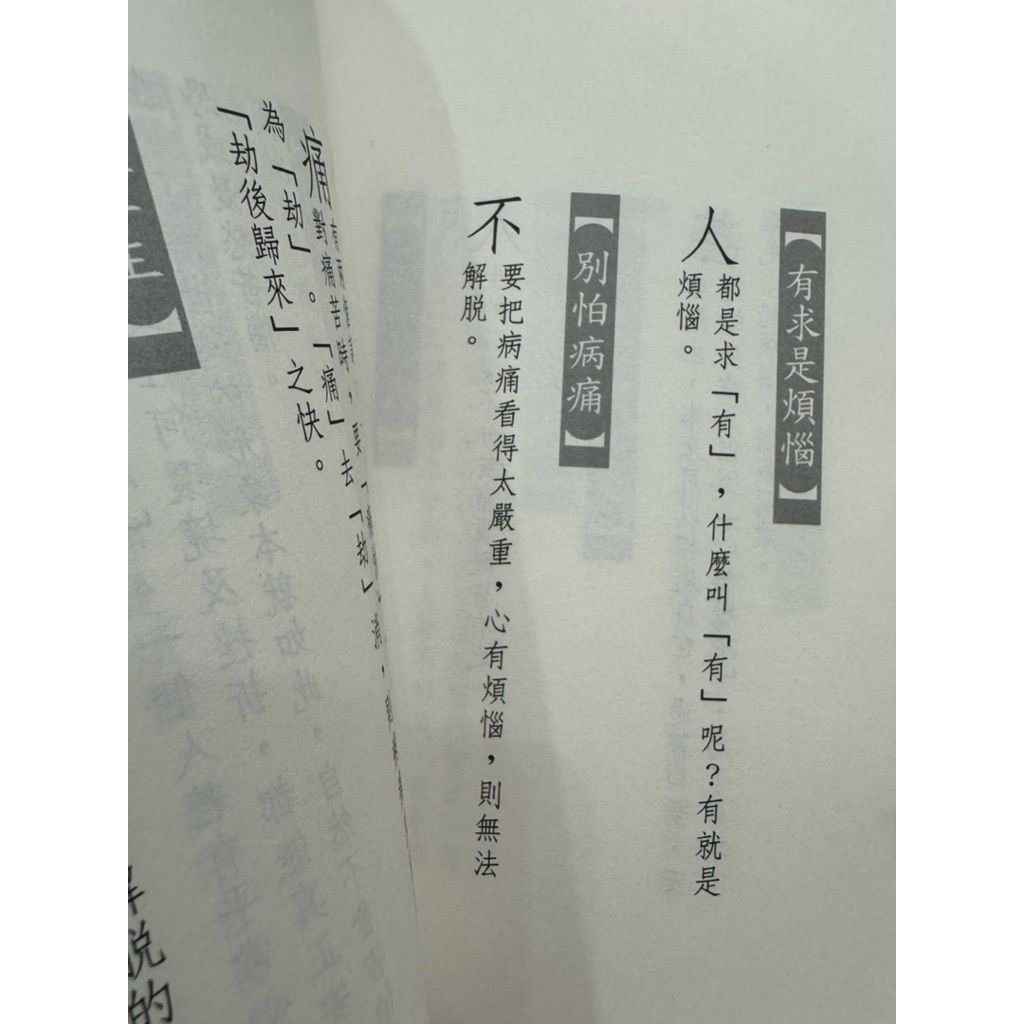 【有求是煩惱】
人都是求「有」，什麼叫「有」呢？有就是
煩惱。
【別怕病痛】
不要把病痛看得太嚴重，心有煩惱，則無法
解脫。
痛
對痛苦時，要
為「劫」。「痛」去「劫」消，
「劫後歸來」之快。
解脫的